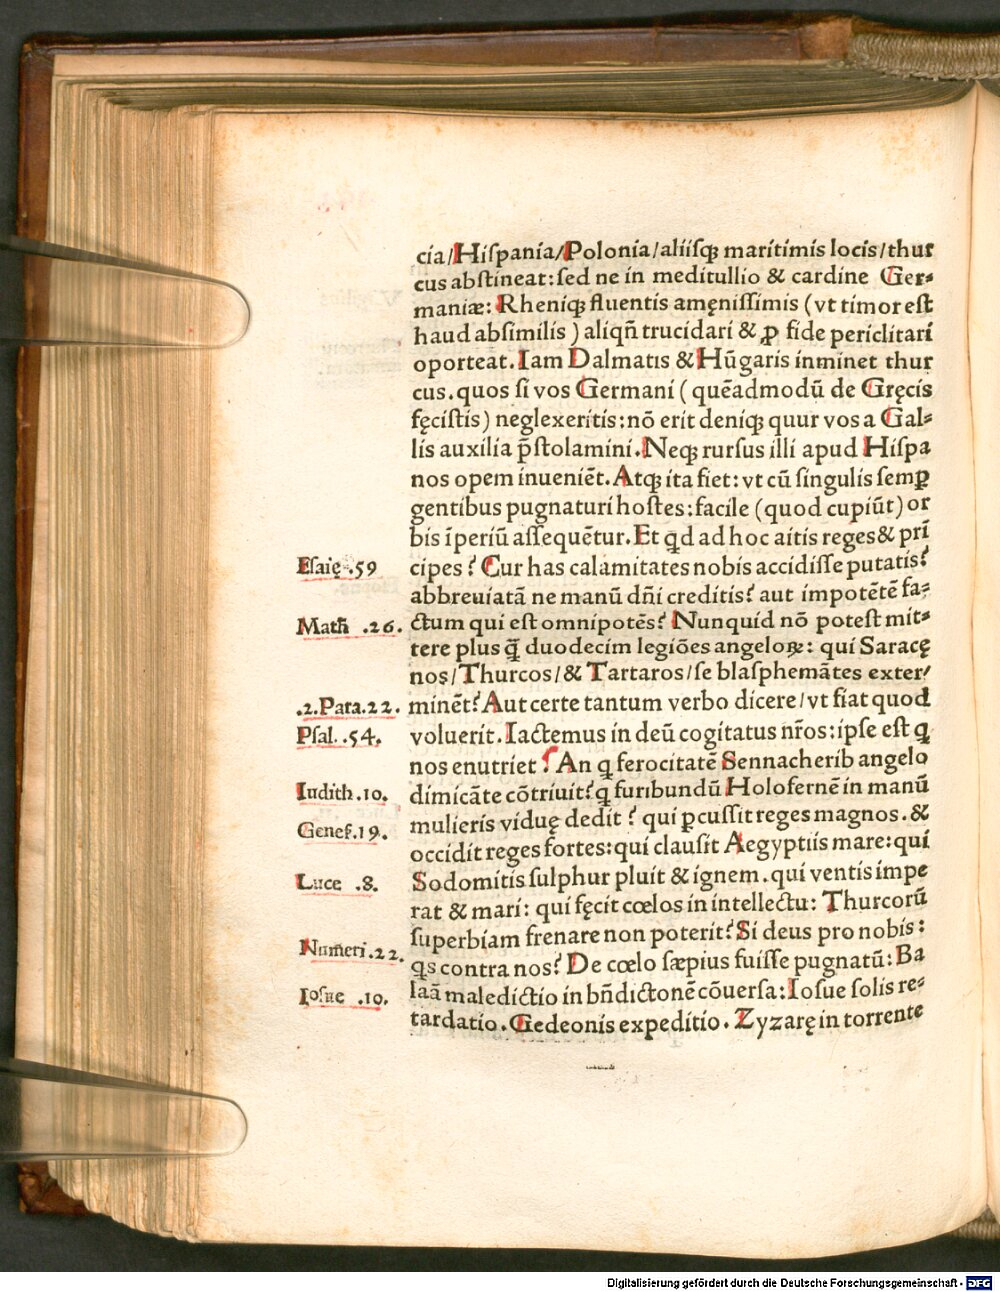 cia/Hiſpania/Polonia/aliiſqꝫ maritimis locis/thur
cus abſtineat:ſed ne in meditullio & cardine Ger⸗
maniæ: Rheniqꝫ fluentis amęniſſimis (vt timor eſt
haud abſimilis ) aliqñ trucidari & ꝓ fide periclitari
oporteat. Iam Dalmatis & Hūgaris inminet thur
cus. quos ſi vos Germani ( quēadmodū de Gręcis
fęciſtis) neglexeritis: nō erit deniqꝫ quur vos a Gal⸗
lis auxilia p̄ſtolamini. Neqꝫ rurſus illi apud Hiſpa
nos opem inueniēt. Atqꝫ ita fiet: vt cū ſingulis ſemꝑ
gentibus pugnaturi hoſtes: facile (quod cupiūt) or
bis īperiū aſſequētur. Et qd ad hoc aitis reges & pri
Eſaię .59
cipes ? Cur has calamitates nobis accidiſſe putatis?
abbreuiatā ne manū dñi creditis? aut impotētē fa⸗
Math̄ .26.
ctum qui eſt omnipotēs? Nunquid nō poteſt mit⸗
tere plus q̄ duodecim legiões angeloꝝ: qui Saracę
nos/Thurcos/& Tartaros/ſe blaſphemātes exter/
.2.Para.22.
minēt? Aut certe tantum verbo dicere/vt fiat quod
Pſal. .54.
voluerit. Iactemus in deū cogitatus nr̄os: ipſe eſt q
nos enutriet ? An q ferocitatē Sennacherib angelo
Iudith.10.
dimicāte cōtriuit? q furibundū Holofernē in manū
Geneſ.19.
mulieris viduę dedit ? qui ꝑcuſſit reges magnos. &
occidit reges fortes: qui clauſit Aegyptiis mare: qui
Luce .8.
Sodomitis ſulphur pluit & ignem. qui ventis impe
rat & mari: qui fęcit cœlos in intellectu: Thurcorū
ſuperbiam frenare non poterit? Si deus pro nobis:
Numeri.22.
qs contra nos? De cœlo ſæpius fuiſſe pugnatū: Ba
Ioſue .10.
laā maledictio in bñdictonē cōuerſa: Ioſue ſolis re⸗
tardatio. Gedeonis expeditio. Zyzarę in torrente
Digitalisierung gefördert durch die Deutsche Forschungsgemeinschaft - DFG